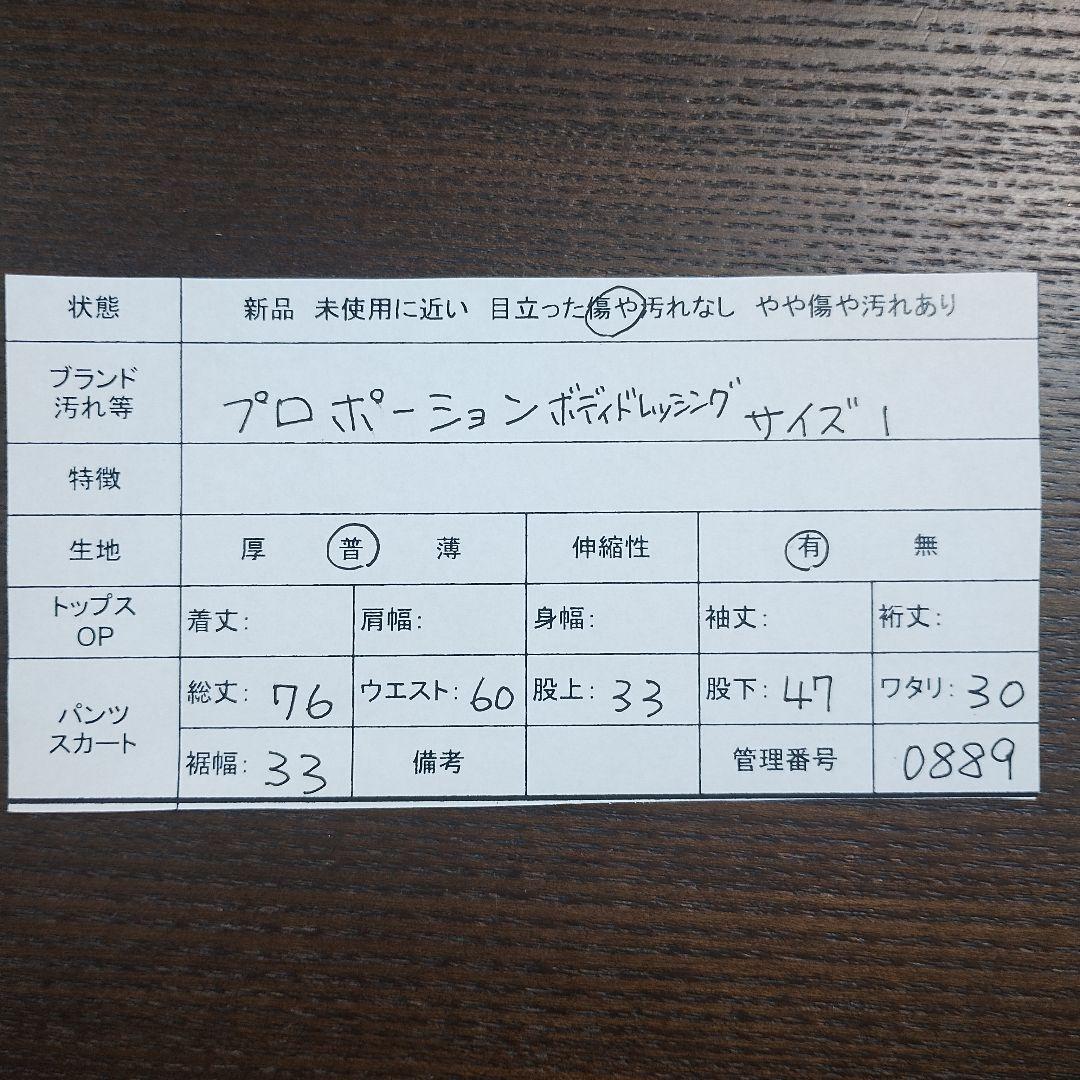 状態 新品 未使用に近い 目立った傷や汚れなし やや傷や汚れあり
ブランド
汚れ等
プロポーションボディドレッシング サイズ1
特徴
生地 厚 普 薄 伸縮性 有 無
トップス
OP
着丈: 肩幅: 身幅: 袖丈: 裄丈:
パンツ
スカート
総丈: 76 ウエスト: 60 股上: 33 股下: 47 ワタリ: 30
裾幅: 33 備考 管理番号 0889